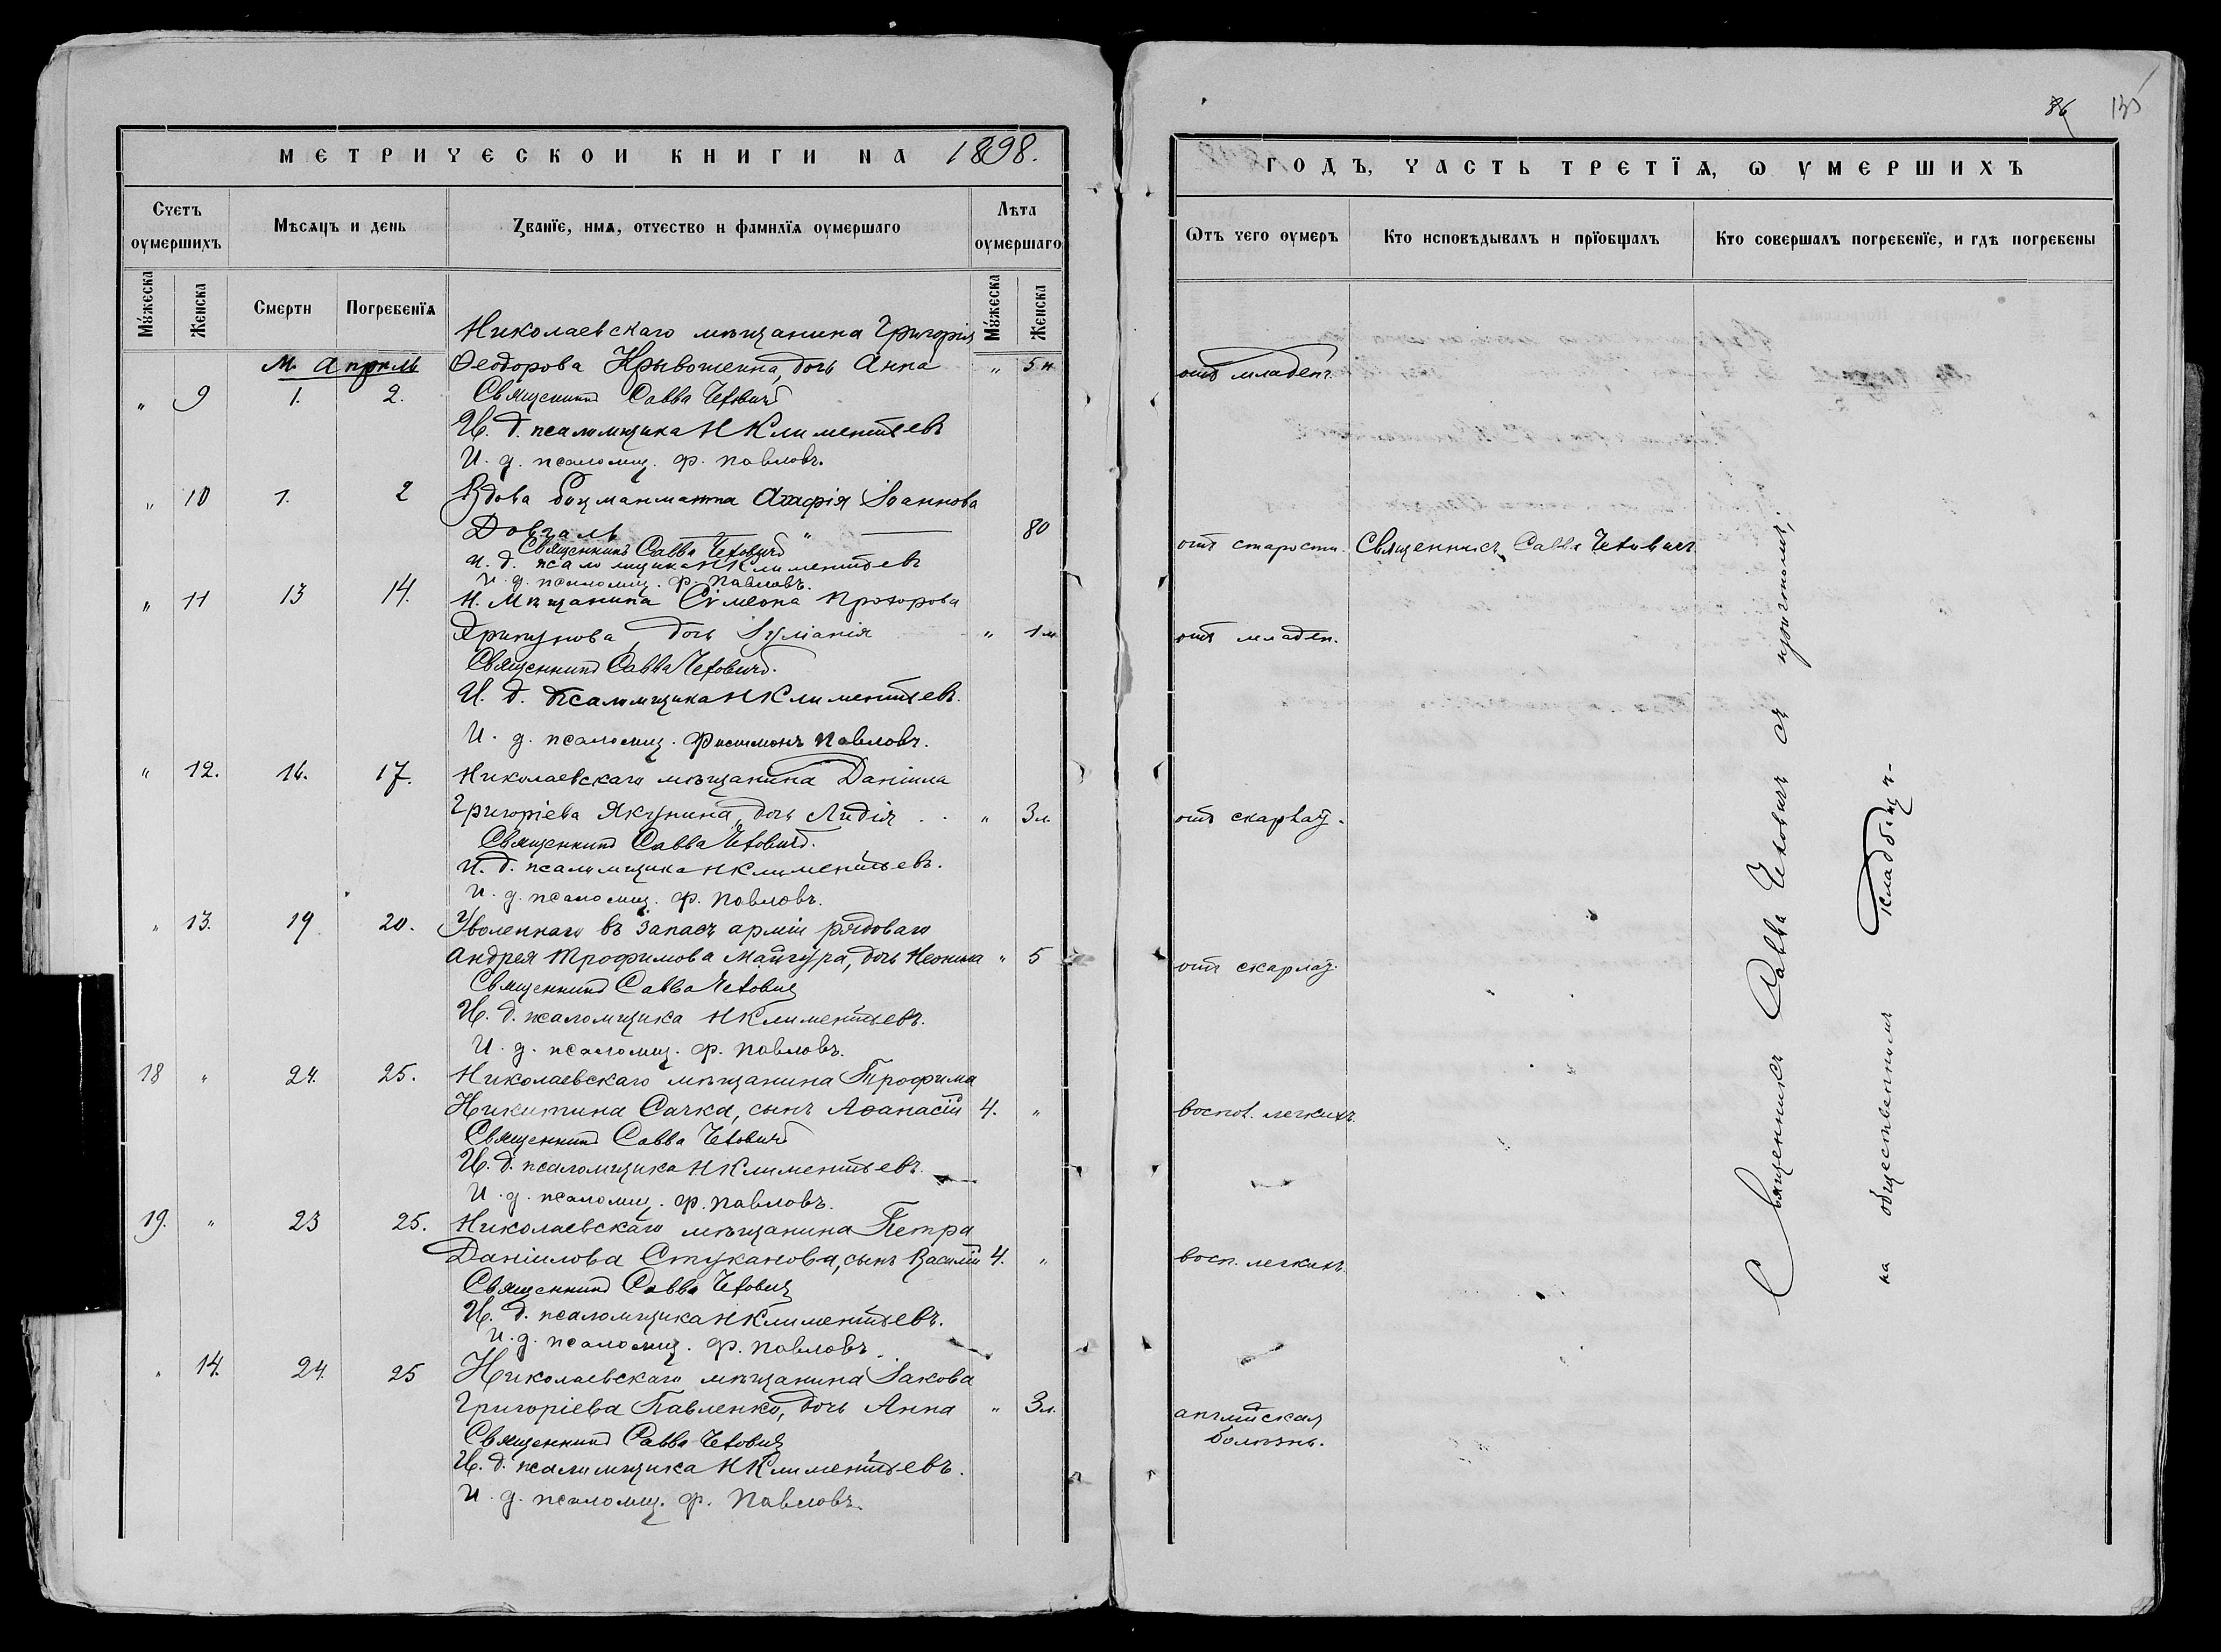 МЕТРИЧЕСКОЙ КНИГИ НА 1898.
Счетъ оумершихъ
Мѣсяцъ и день
Званїе, имѧ, отчество и фамилїѧ оумершаго
Лѣта оумершаго
Мꙋжеска
Женска
Смерти
Погребенїѧ
Мꙋжеска
Женска
Николаевскаго мѣщанина Григорія
М. Апрѣль Ѳеодорова дочь Анна " 5 н
" 9 1. 2. Священникъ Савва Чехович
И. д. псаломщика Н Климентьевъ
И. д. псаломщ. Ф. Павловъ.
" 10 1. 2 Вдова боцманмата Агафія Іоаннова
Довгаль " 80
Священникъ Савва Чехович
И. д. псаломщика Н Климентьевъ
И. д. псаломщ. Ф. Павловъ.
" 11 13 14. Н. Мѣщанина Сѵмеона Прохорова
Хрипунова, дочь Іуліанія " 1 м.
Священникъ Савва Чехович.
И. д. псаломщика Н Климентьевъ.
И. д. псаломщ. Филимонъ Павловъ.
" 12. 16. 17. Николаевскаго мѣщанина Даніила
Григоріева Якунина, дочь Лидія . . " 3 л.
Священникъ Савва Чехович.
И. д. псаломщика Н Климентьевъ.
И. д. псаломщ. Ф. Павловъ.
" 13. 19 20. Уволеннаго въ запасъ арміи рядоваго
Андрея Трофимова Мангура, дочь Неонила " 5
Священникъ Савва Чехович
И. д. псаломщика Н Климентьевъ.
И. д. псаломщ. Ф. Павловъ.
18 " 24. 25. Николаевскаго мѣщанина Трофима
Никитина Сачка, сынъ Аѳанасій 4. "
Священникъ Савва Чехович
И. д. псаломщика Н Климентьевъ.
И. д. псаломщ. Ф. Павловъ.
19. " 23 25. Николаевскаго мѣщанина Петра
Даніилова Стуканова, сынъ Василій 4. "
Священникъ Савва Чехович
И. д. псаломщика Н Климентьевъ.
И. д. псаломщ. Ф. Павловъ.
" 14. 24. 25 Николаевскаго мѣщанина Іакова
Григоріева Павленко, дочь Анна " 3 л.
Священникъ Савва Чехович
И. д. псаломщика Н Климентьевъ.
И. д. псаломщ. Ф. Павловъ.
86
ГОДЪ, ЧАСТЬ ТРЕТЇѦ, Ѡ ОУМЕРШИХЪ
Ѿтъ чего оумеръ
Кто исповѣдывалъ и прїобщалъ
Кто совершалъ погребенїе, и гдѣ погребены
отъ младенч.
отъ старости. Священникъ Савва Чеховичъ
отъ младен.
отъ скарлат.
отъ скарлат.
воспол. легкихъ
восп. легкихъ.
англійская
болѣзнь.
Священникъ Савва Чеховичъ съ причтомъ,
на общественномъ кладбищѣ